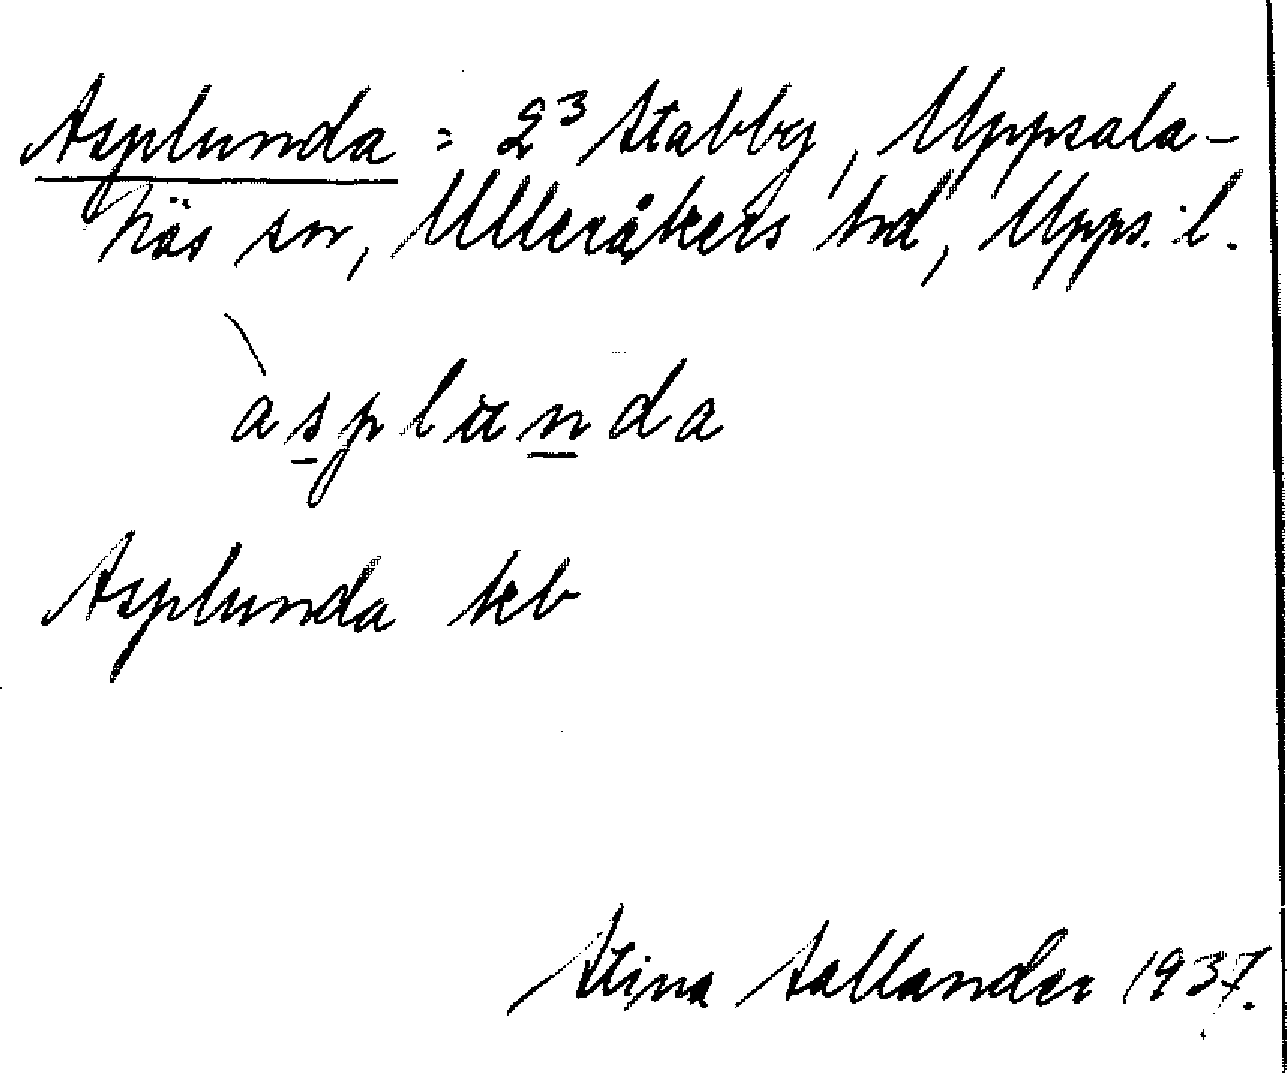 Asplunda = 2³ Stabby, Uppsala-
Näs sn, Ulleråkers hd, Upps. l.
àsplunda
Asplunda kb
Stina Sallander 1937.